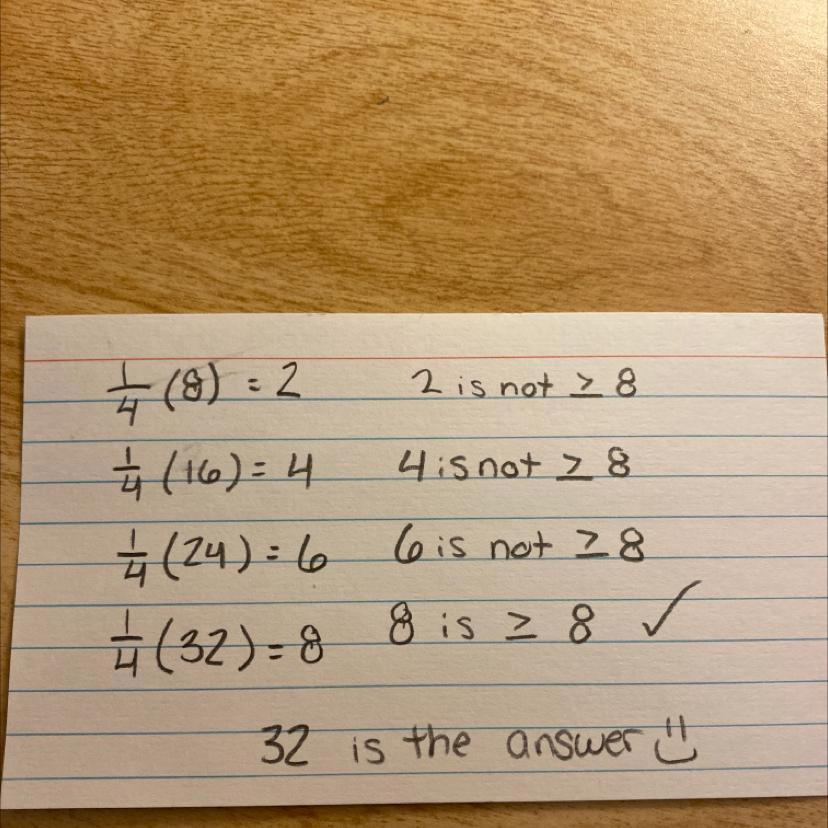 1/4 (8) = 2 2 is not ≥ 8
1/4 (16) = 4 4 is not ≥ 8
1/4 (24) = 6 6 is not ≥ 8
1/4 (32) = 8 8 is ≥ 8 ✓
32 is the answer